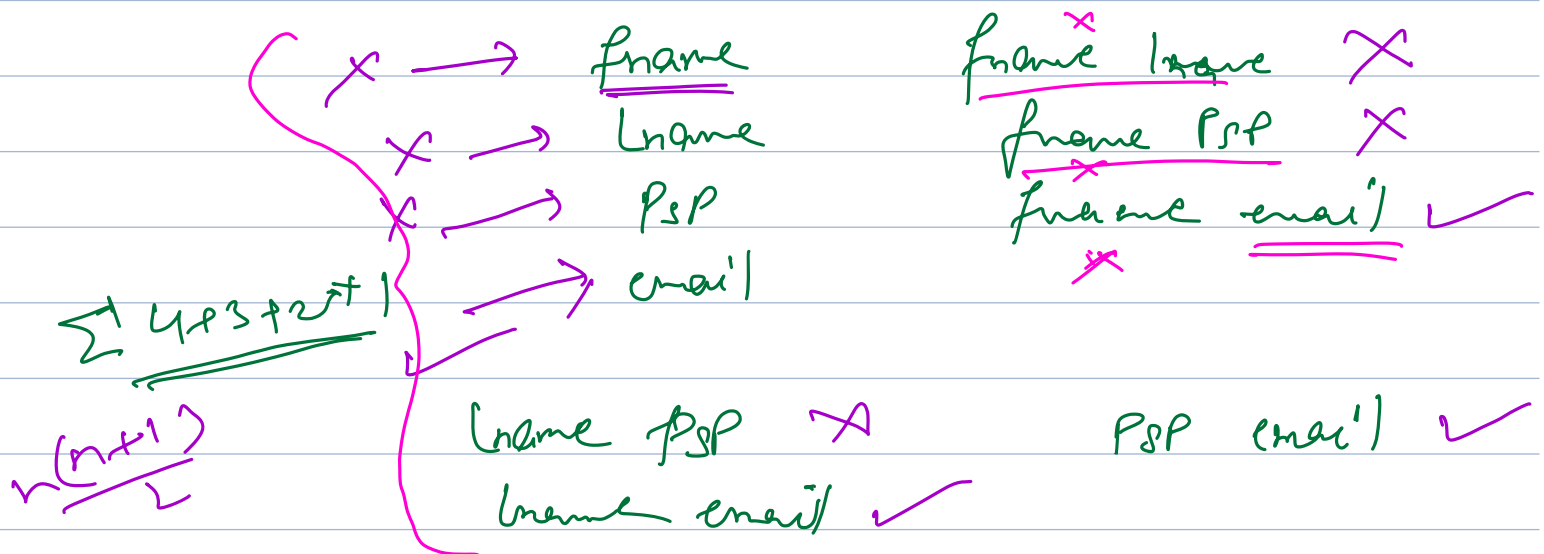 x → fname
x → Lname
x → PSP
→ email ✓
fname lname x
fname PSP x
fname email ✓
∑ 4+3+2+1
n(n+1)
2
lname PSP x
lname email ✓
PSP email ✓